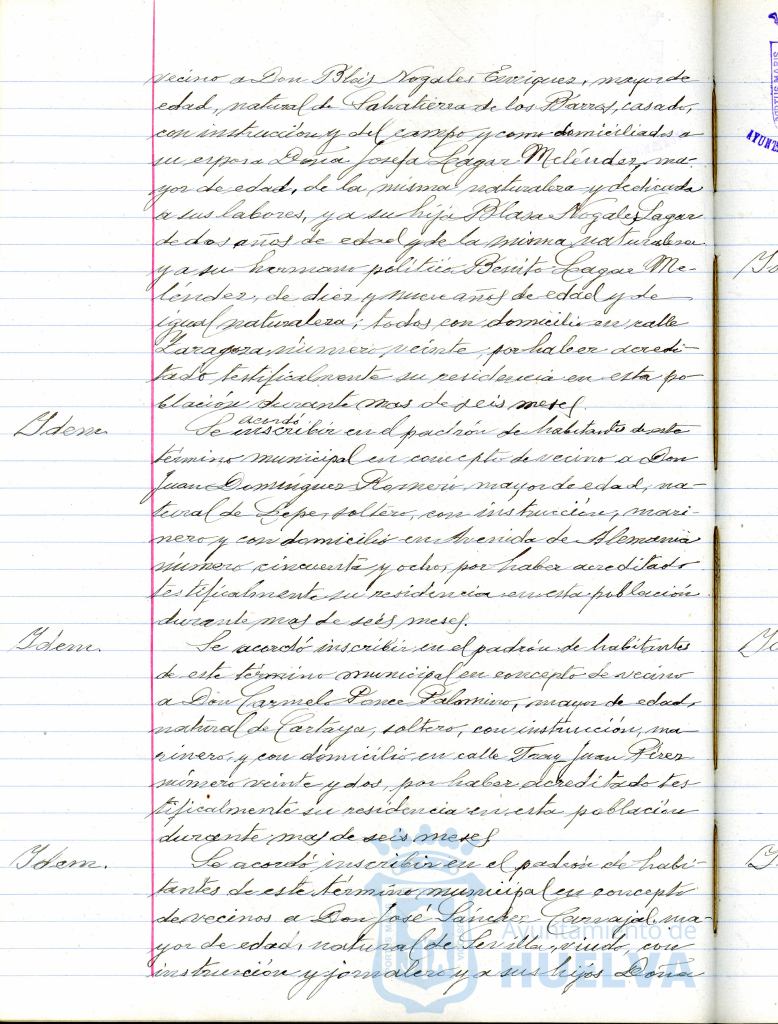 vecino a Don Blás Nogales Enriquez, mayor de
edad, natural de Salvatierra de los Barros, casado,
con instrucción y del campo y como domiciliados a
su esposa Doña Josefa Lagar Meléndez, ma-
yor de edad, de la misma naturaleza y dedicada
a sus labores, y a su hija Blasa Nogales Lagar
de dos años de edad y de la misma naturaleza
y a su hermano politico Benito Lagar Me-
léndez, de diez y nueve años de edad y de
igual naturaleza; todos con domicilio en calle
Zaragoza número veinte, por haber acredi-
tado testificalmente su residencia en esta po-
blación durante mas de seis meses.
Idem.
Se acordó inscribir en el padrón de habitantes de este
término municipal en concepto de vecino a Don
Juan Domínguez Romero, mayor de edad, na-
tural de Lepe, soltero, con instrucción, mari-
nero y con domicilio en Avenida de Alemania
número cincuenta y ocho, por haber acreditado
testificalmente su residencia en esta población
durante mas de seis meses.
Idem.
Se acordó inscribir en el padrón de habitantes
de este término municipal en concepto de vecino
a Don Carmelo Ponce Palomino, mayor de edad,
natural de Cartaya, soltero, con instrucción, ma-
rinero, y con domicilio en calle Fray Juan Pérez
número veinte y dos, por haber acreditado tes
tificalmente su residencia en esta población
durante mas de seis meses
Idem.
Se acordó inscribir en el padrón de habi-
tantes de este término municipal en concepto
de vecinos a Don José Sánchez Carvajal, ma-
yor de edad, natural de Sevilla, viudo, con
instrucción y jornalero y a sus hijos Doña
Ayuntamiento de
HUELVA